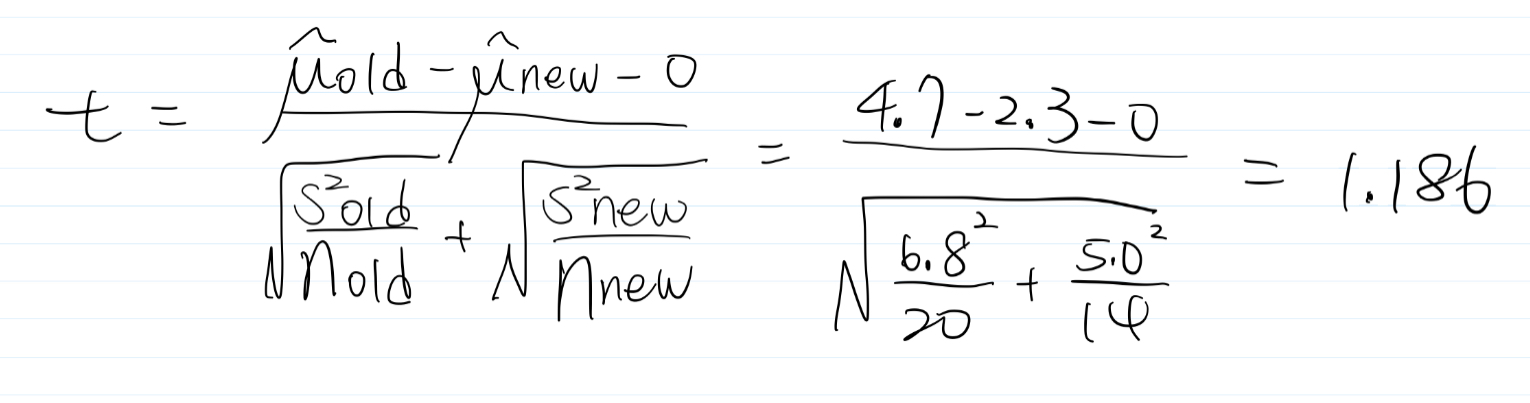 t = \frac{\hat{\mu}_{old} - \hat{\mu}_{new} - 0}{\sqrt{\frac{s^2_{old}}{n_{old}}} + \sqrt{\frac{s^2_{new}}{n_{new}}}} = \frac{4.7 - 2.3 - 0}{\sqrt{\frac{6.8^2}{20} + \frac{5.0^2}{14}}} = 1.186